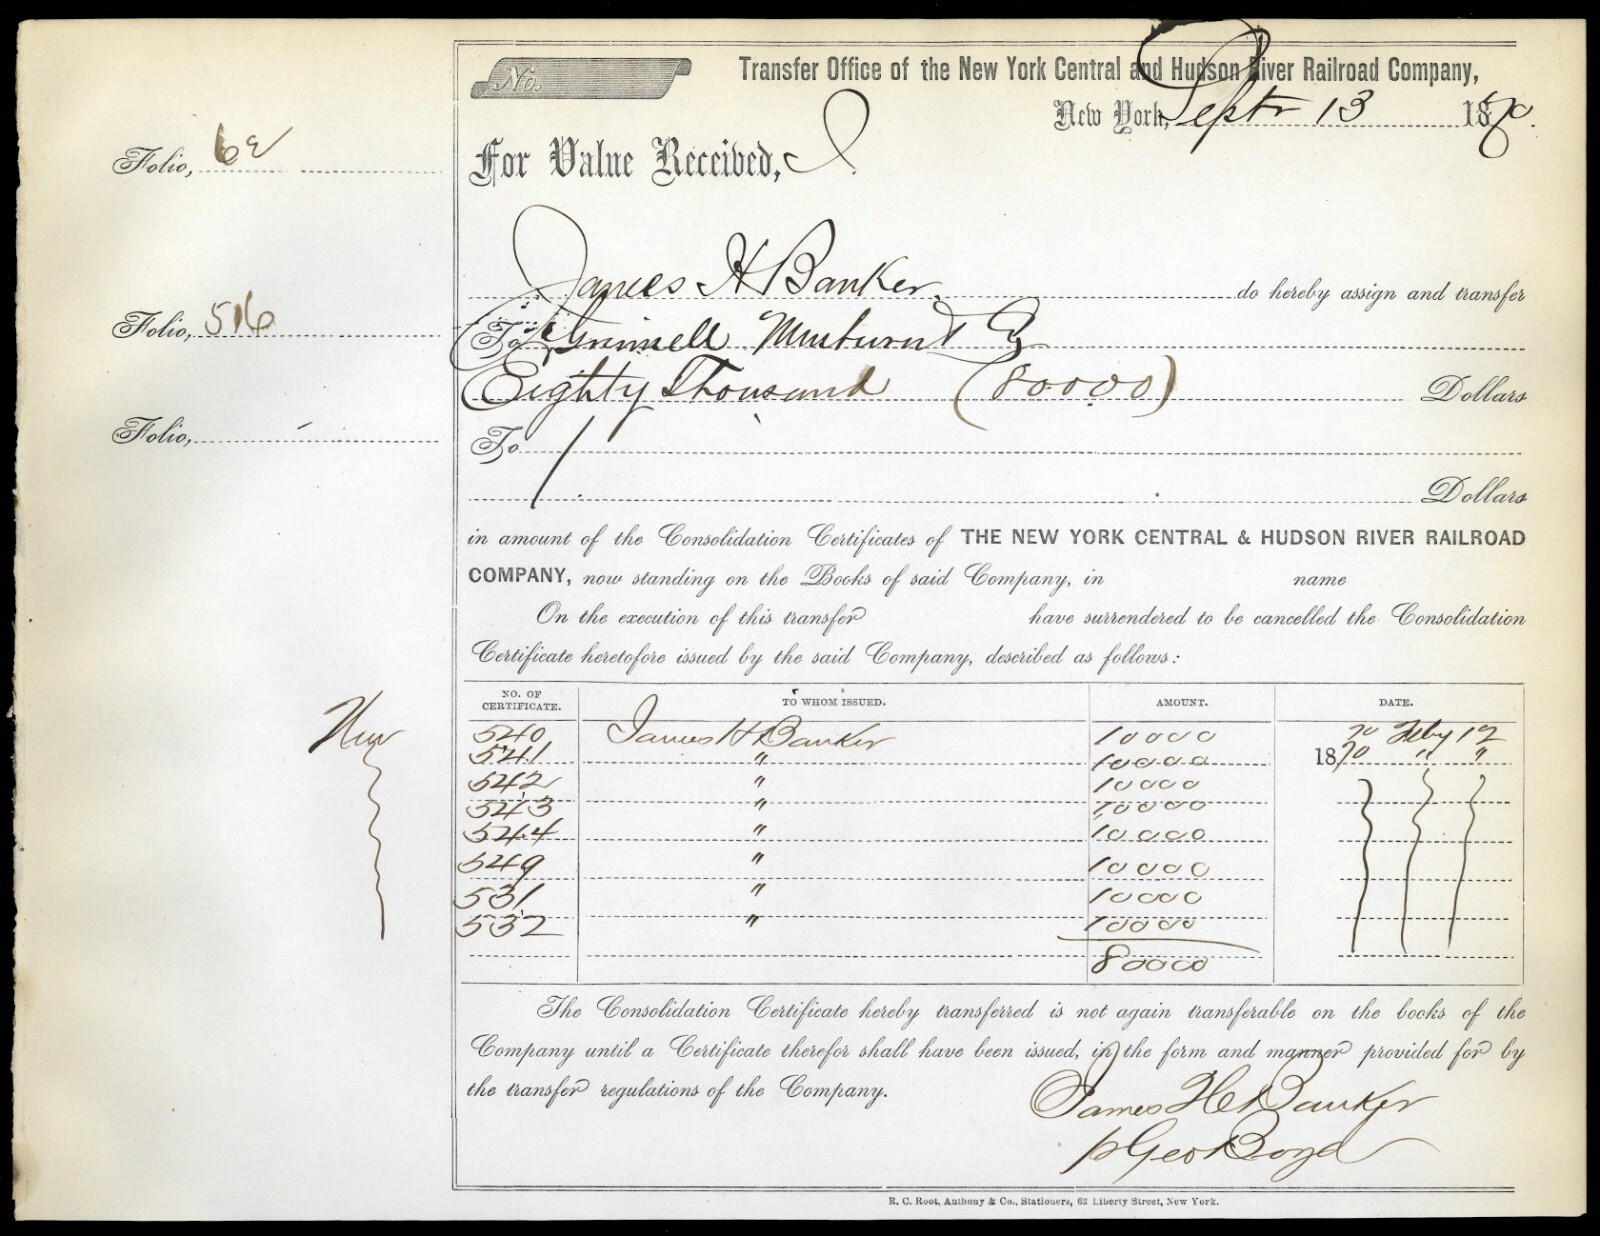 No.
Transfer Office of the New York Central and Hudson River Railroad Company,
New York, Septr 13 1870.
Folio, 62
For Value Received, I
James H Banker do hereby assign and transfer
Folio, 516
To Grinnell Minturn & Co
Eighty Thousand (80000) Dollars
Folio,
To
Dollars
in amount of the Consolidation Certificates of THE NEW YORK CENTRAL & HUDSON RIVER RAILROAD
COMPANY, now standing on the Books of said Company, in name
On the execution of this transfer have surrendered to be cancelled the Consolidation
Certificate heretofore issued by the said Company, described as follows:
NO. OF CERTIFICATE. TO WHOM ISSUED. AMOUNT. DATE.
540 James H Banker 10000 70 Feby 12
541 " 10000 1870 " "
542 " 10000
543 " 10000
544 " 10000
549 " 10000
531 " 10000
532 " 10000
80000
The Consolidation Certificate hereby transferred is not again transferable on the books of the
Company until a Certificate therefor shall have been issued, in the form and manner provided for by
the transfer regulations of the Company.
James H Banker
p Geo Boyd
R. C. Root, Anthony & Co., Stationers, 62 Liberty Street, New York.